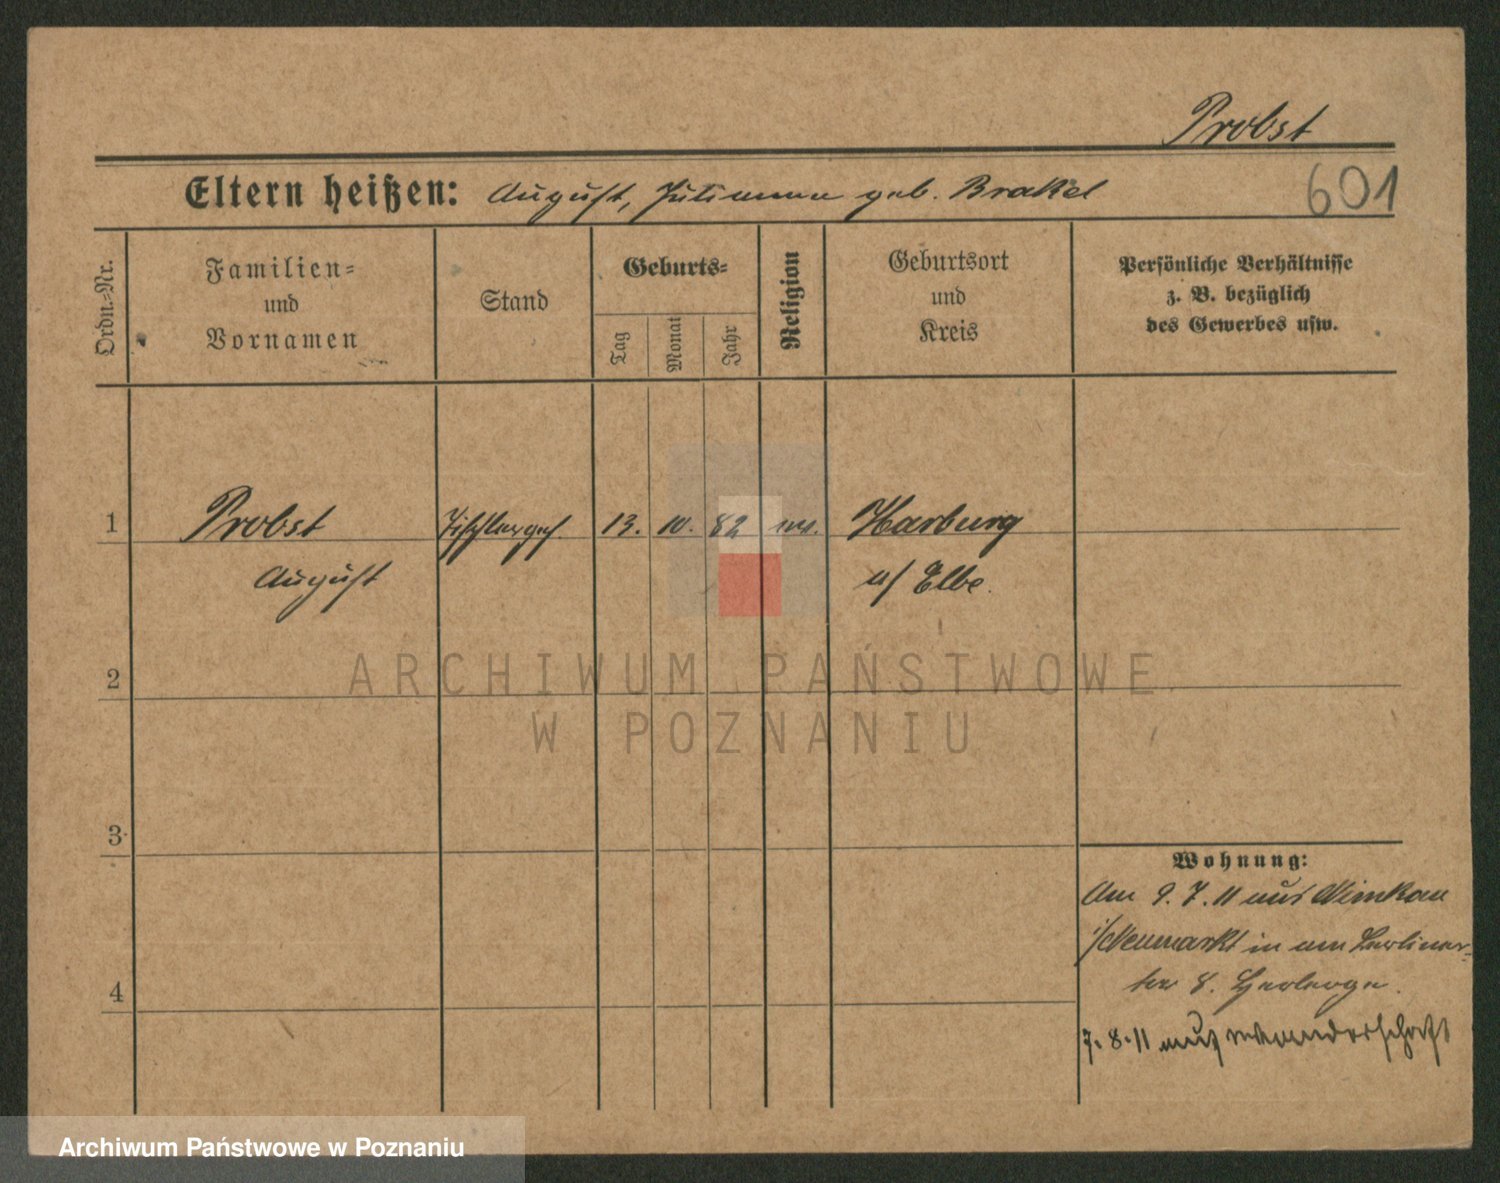 Probst
Eltern heißen: August, Julianna geb. Brakel
601
Ordn.-Nr.
Familien-
und
Vornamen
Stand
Geburts-
Tag
Monat
Jahr
Religion
Geburtsort
und
Kreis
Persönliche Verhältnisse
z. B. bezüglich
des Gewerbes usw.
1 Probst Tischlerges. 13. 10. 82 Harburg
August a/ Elbe.
2
3
4
Wohnung:
Am 9.7.11 aus Nimkau
i/Neumarkt in Berliner-
8. Herberge.
7.8.11 auf Wanderschaft
ARCHIWUM PAŃSTWOWE
W POZNANIU
Archiwum Państwowe w Poznaniu